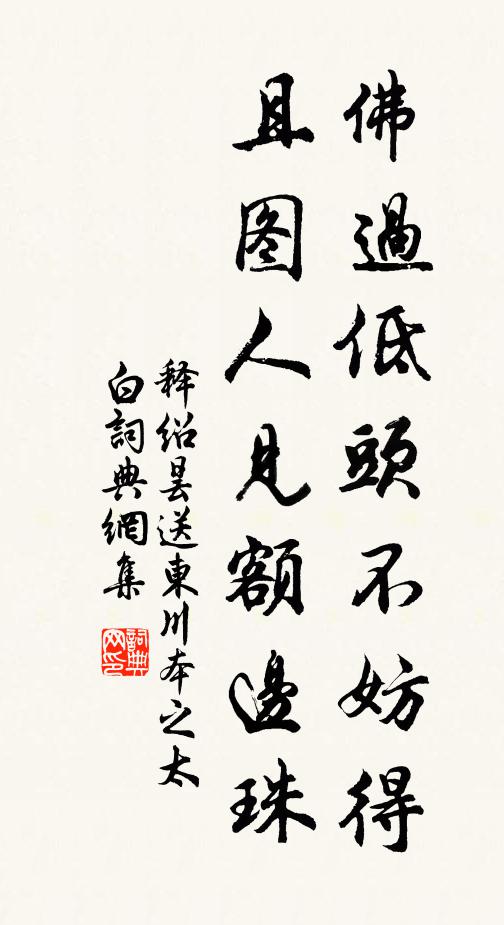 佛過低頭不妨得
且图人見額邊珠
释紹曇送東川本之太
白詞典網集
詞典网印